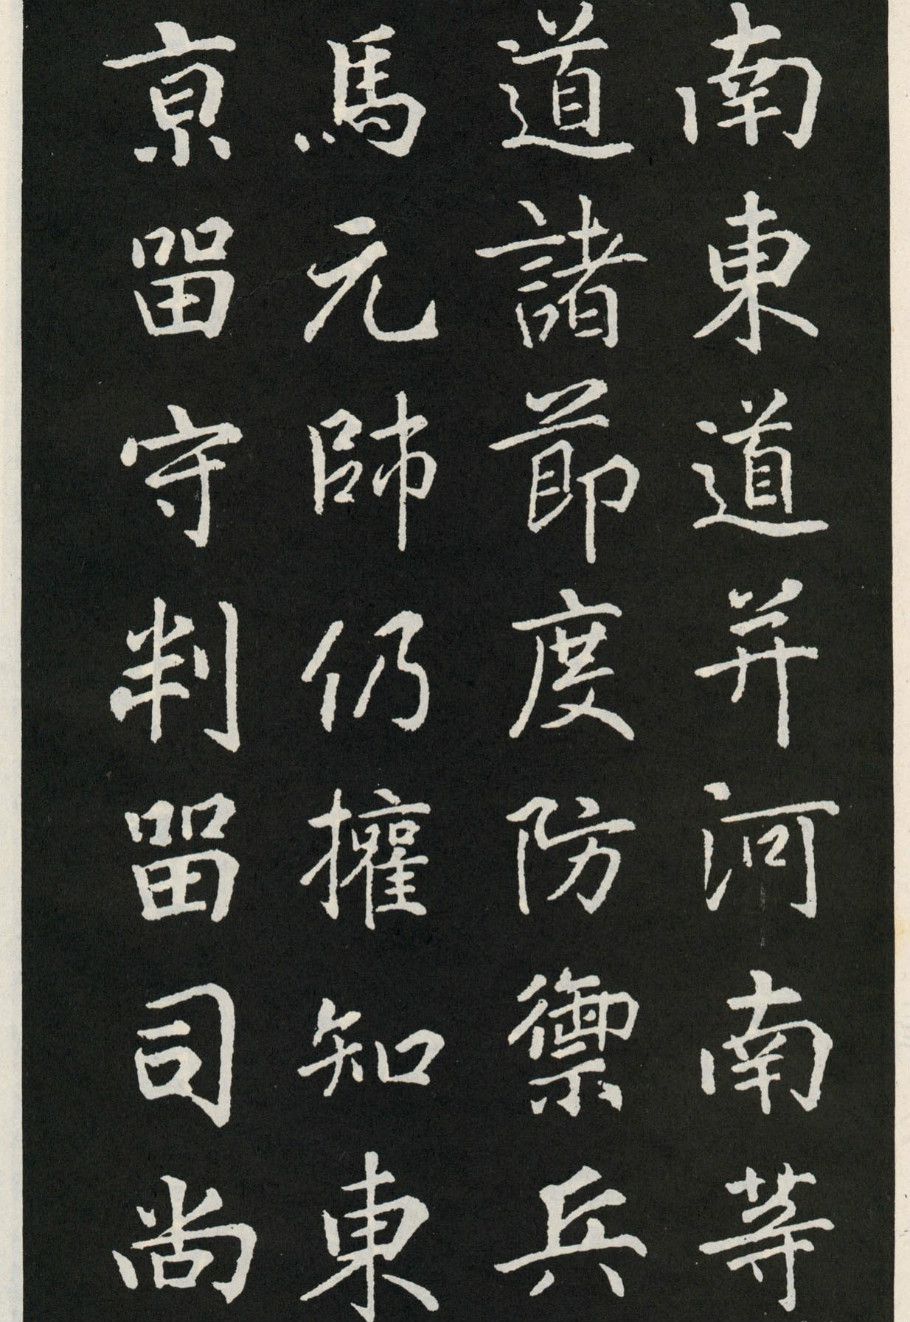 南東道并河南等
道諸節度防禦兵
馬元帥仍擁知東
京留守判留司尚